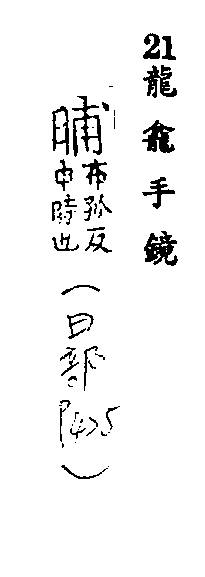 21龍龕手鏡
晡布孤反
申時也
(日部
P425)